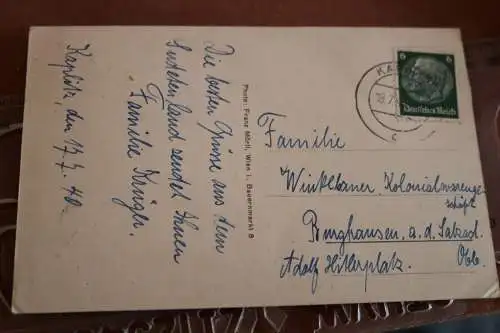 Kaplitz, den 17.7.40.
Die besten Grüsse aus dem
Sudetenland sendet Ihnen
Familie Krüger.
Photo: Franz Mörtl, Wien I., Bauernmarkt 8
6 6
Deutsches Reich
KA
18.7.
c
Familie
Winklbauer, Kolonialwarenge-
schäft
Burghausen, a. d. Salzach
Adolf Hitlerplatz. Obb.